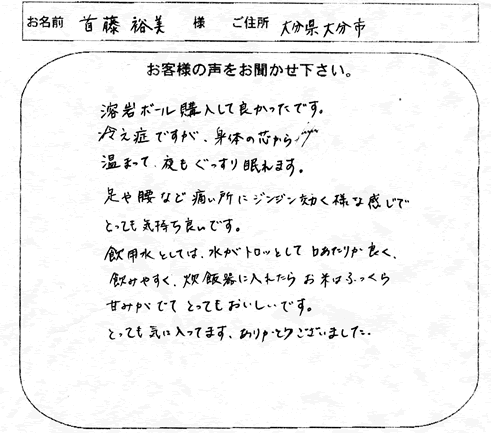 お名前 首藤 裕美 様 ご住所 大分県大分市
お客様の声をお聞かせ下さい。
溶岩ボール購入して良かったです。
冷え症ですが、身体の芯から
温まって、夜もぐっすり眠れます。
足や腰など痛い所にジンジン効く様な感じで
とっても気持ち良いです。
飲用水としては、水がトロッとして口あたりが良く、
飲みやすく、炊飯器に入れたらお米はふっくら
甘みがでてとってもおいしいです。
とっても気に入ってます、ありがとうございました。